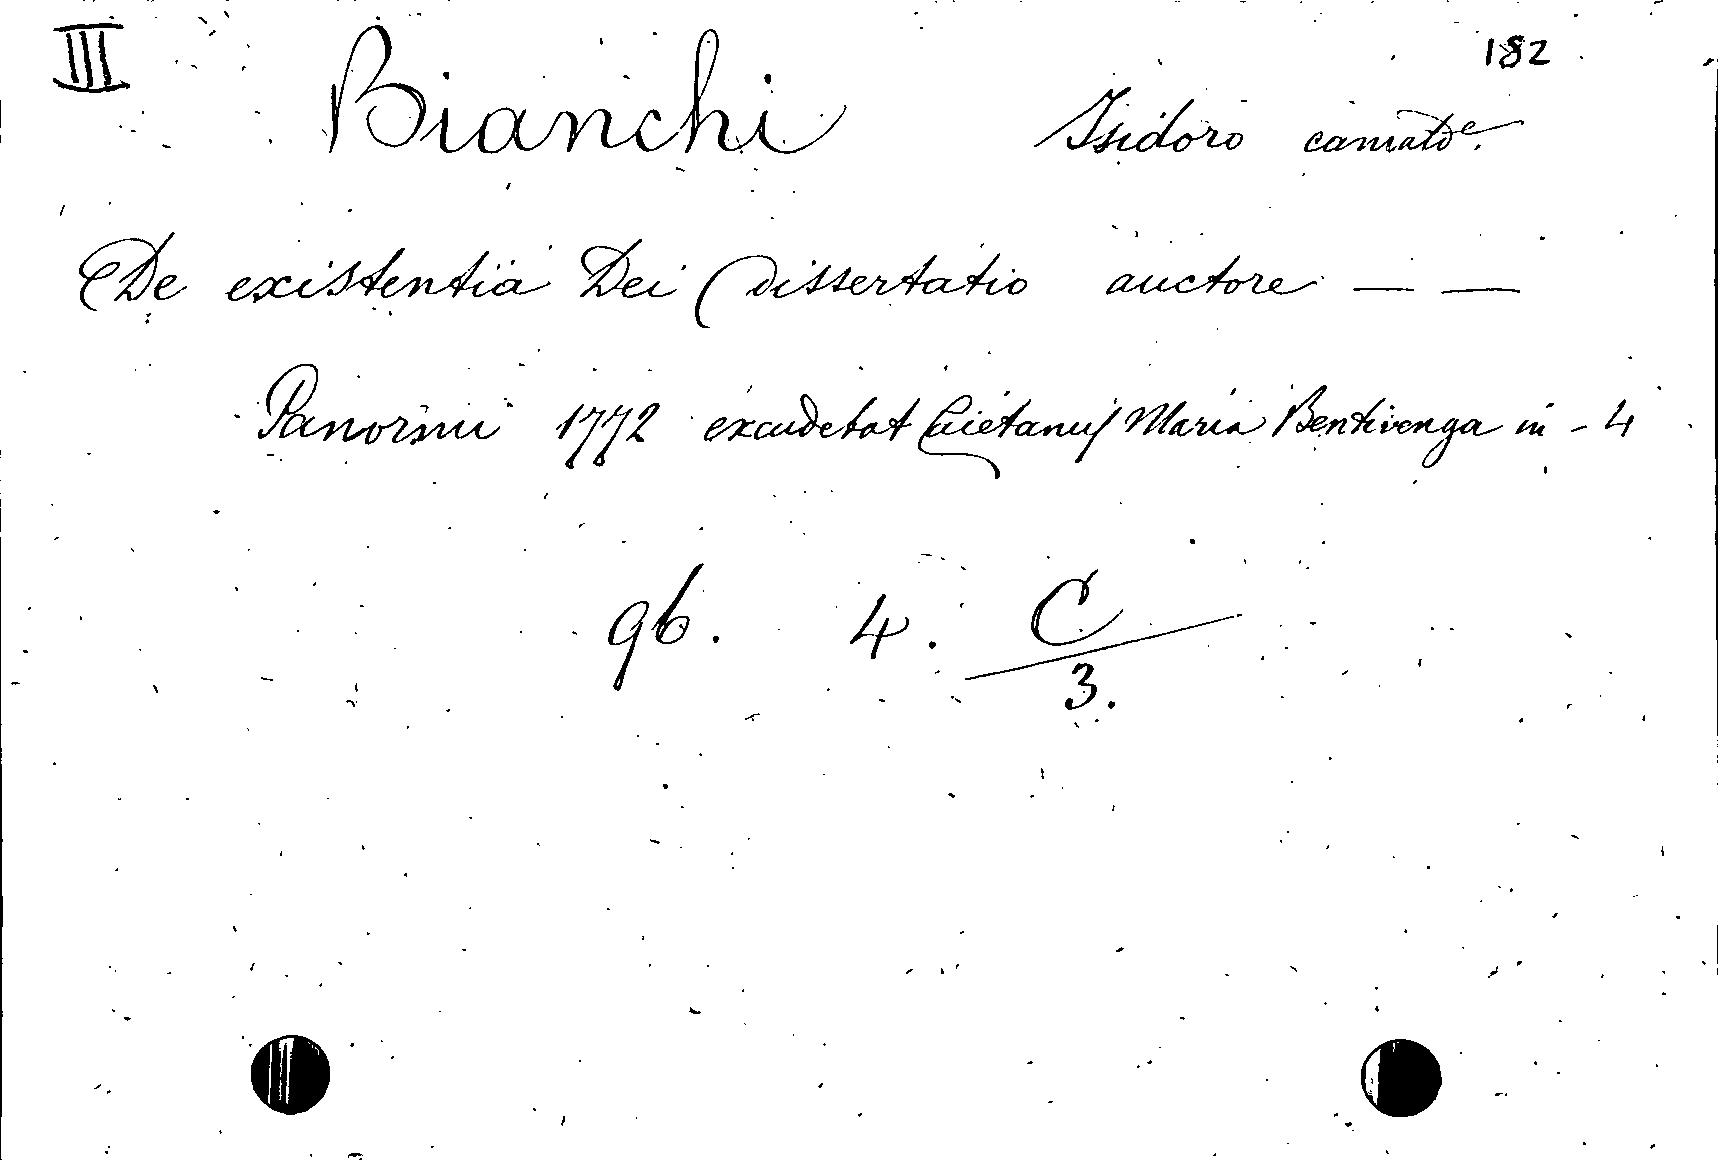 III 182
Bianchi Isidoro camald.e
De existentia Dei Dissertatio auctore — —
Panormi 1772 excudebat Caietanus Maria Bentivenga in - 4
96. 4. C
3.